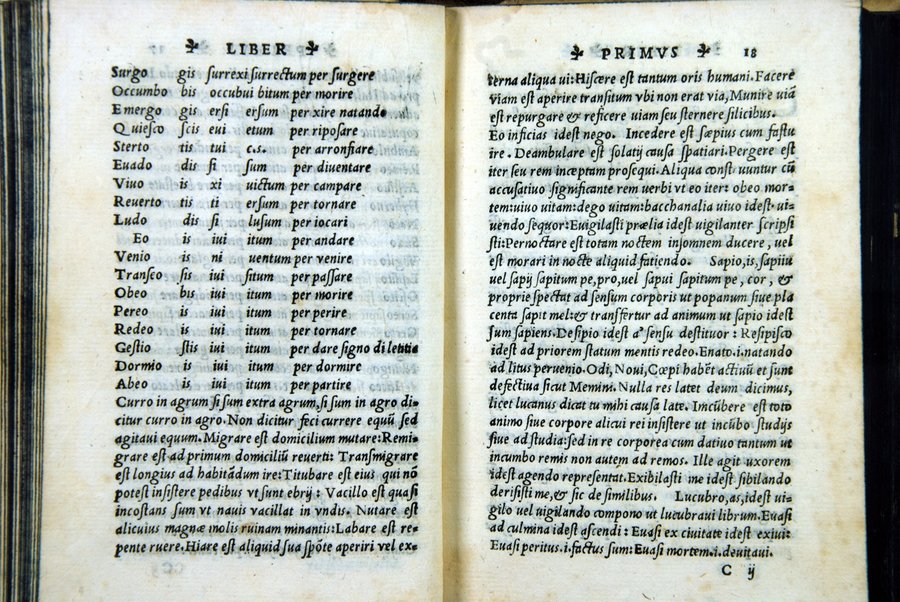 LIBER
Surgo gis surrexi surrectum per surgere
Occumbo bis occubui bitum per morire
Emergo gis ersi ersum per xire natando
Quiesco scis eui etum per riposare
Sterto tis tui c.s. per arronfiare
Euado dis si sum per diuentare
Viuo is xi uictum per campare
Reuerto tis ti ersum per tornare
Ludo dis si lusum per iocari
Eo is iui itum per andare
Venio is ni uentum per venire
Transeo sis iui situm per passare
Obeo bis iui itum per morire
Pereo is iui itum per perire
Redeo is iui itum per tornare
Gestio stis iui itum per dare signo di letitia
Dormio is iui itum per dormire
Abeo is iui itum per partire
Curro in agrum si sum extra agrum, si sum in agro di-
citur curro in agro. Non dicitur feci currere equũ sed
agitaui equum. Migrare est domicilium mutare: Remi-
grare est ad primum domiciliũ reuerti: Transmigrare
est longius ad habitãdum ire: Titubare est eius qui nõ
potest insistere pedibus vt sunt ebrij: Vacillo est quasi
incostans sum vt nauis vacillat in vndis. Nutare est
alicuius magnæ molis ruinam minantis: Labare est re-
pente ruere. Hiare est aliquid sua spõte aperiri vel ex-
PRIMVS 18
terna aliqua ui: Hiscere est tantum oris humani. Facere
viam est aperire transitum vbi non erat via, Munire uiã
est repurgare & reficere uiam seu sternere silicibus.
Eo inficias idest nego. Incedere est sæpius cum fastu
ire. Deambulare est solatij causa spatiari. Pergere est
iter seu rem inceptam prosequi. Aliqua const uuntur cũ
accusatiuo significante rem uerbi vt eo iter: obeo mor-
tem: uiuo uitam: dego uitam: bacchanalia uiuo idest ui-
uendo sequor: Euigilasti prælia idest uigilanter scripsi
sti: Pernoctare est totam noctem insomnem ducere, uel
est morari in nocte aliquid fatiendo. Sapio, is, sapiui
uel sapij sapitum pe, pro, uel sapui sapitum pe, cor, &
proprie spectat ad sensum corporis ut popanum siue pla
centa sapit mel: & transfertur ad animum ut sapio idest
sum sapiens. Desipio idest a' sensu destituor: Resipisco
idest ad priorem statum mentis redeo. Enato .i. natando
ad litus peruenio. Odi, Noui, Cœpi habẽt actiuũ et sunt
defectiua sicut Memini. Nulla res latet deum dicimus,
licet lucanus dicat tu mihi causa late. Incũbere est toto
animo siue corpore alicui rei insistere ut incũbo studijs
siue ad studia: sed in re corporea cum datiuo tantum ut
incumbo remis non autem ad remos. Ille agit uxorem
idest agendo representat. Exibilasti me idest sibilando
derisisti me, & sic de similibus. Lucubro, as, idest ui-
gilo uel uigilando compono ut lucubraui librum. Euasi
ad culmina idest ascendi: Euasi ex ciuitate idest exiui:
Euasi peritus .i. factus sum: Euasi mortem .i. deuitaui.
C ij